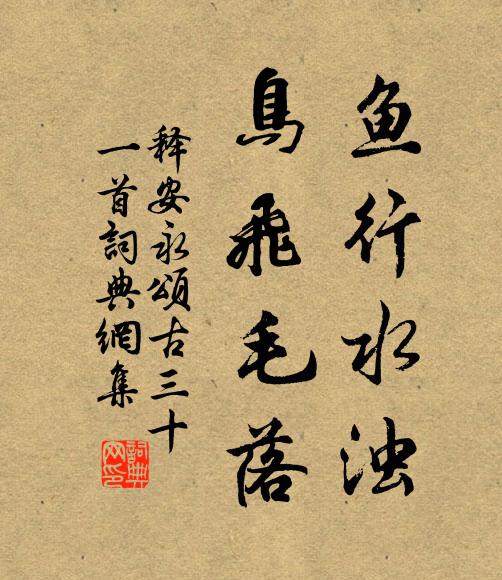 鱼行水浊
鳥飛毛落
释安永頌古三十
一首詞典網集
詞典
网印